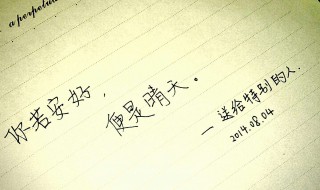 a perpetua
你若安好，
便是晴天。
— 送给特别的人.
2014.08.04